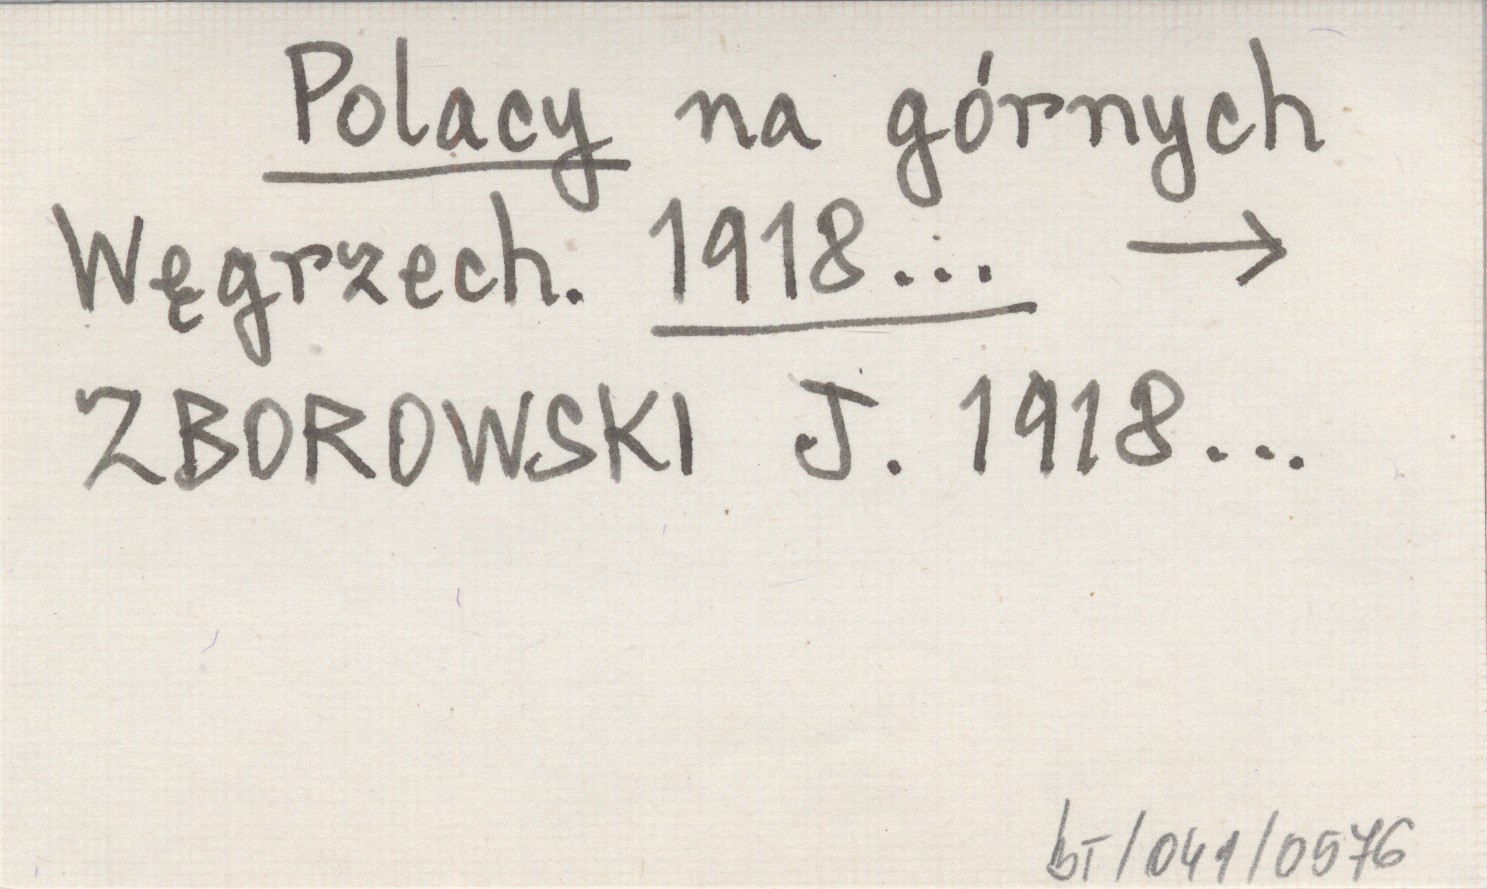 Polacy na górnych
Węgrzech. 1918... →
ZBOROWSKI J. 1918...
bT/041/0576